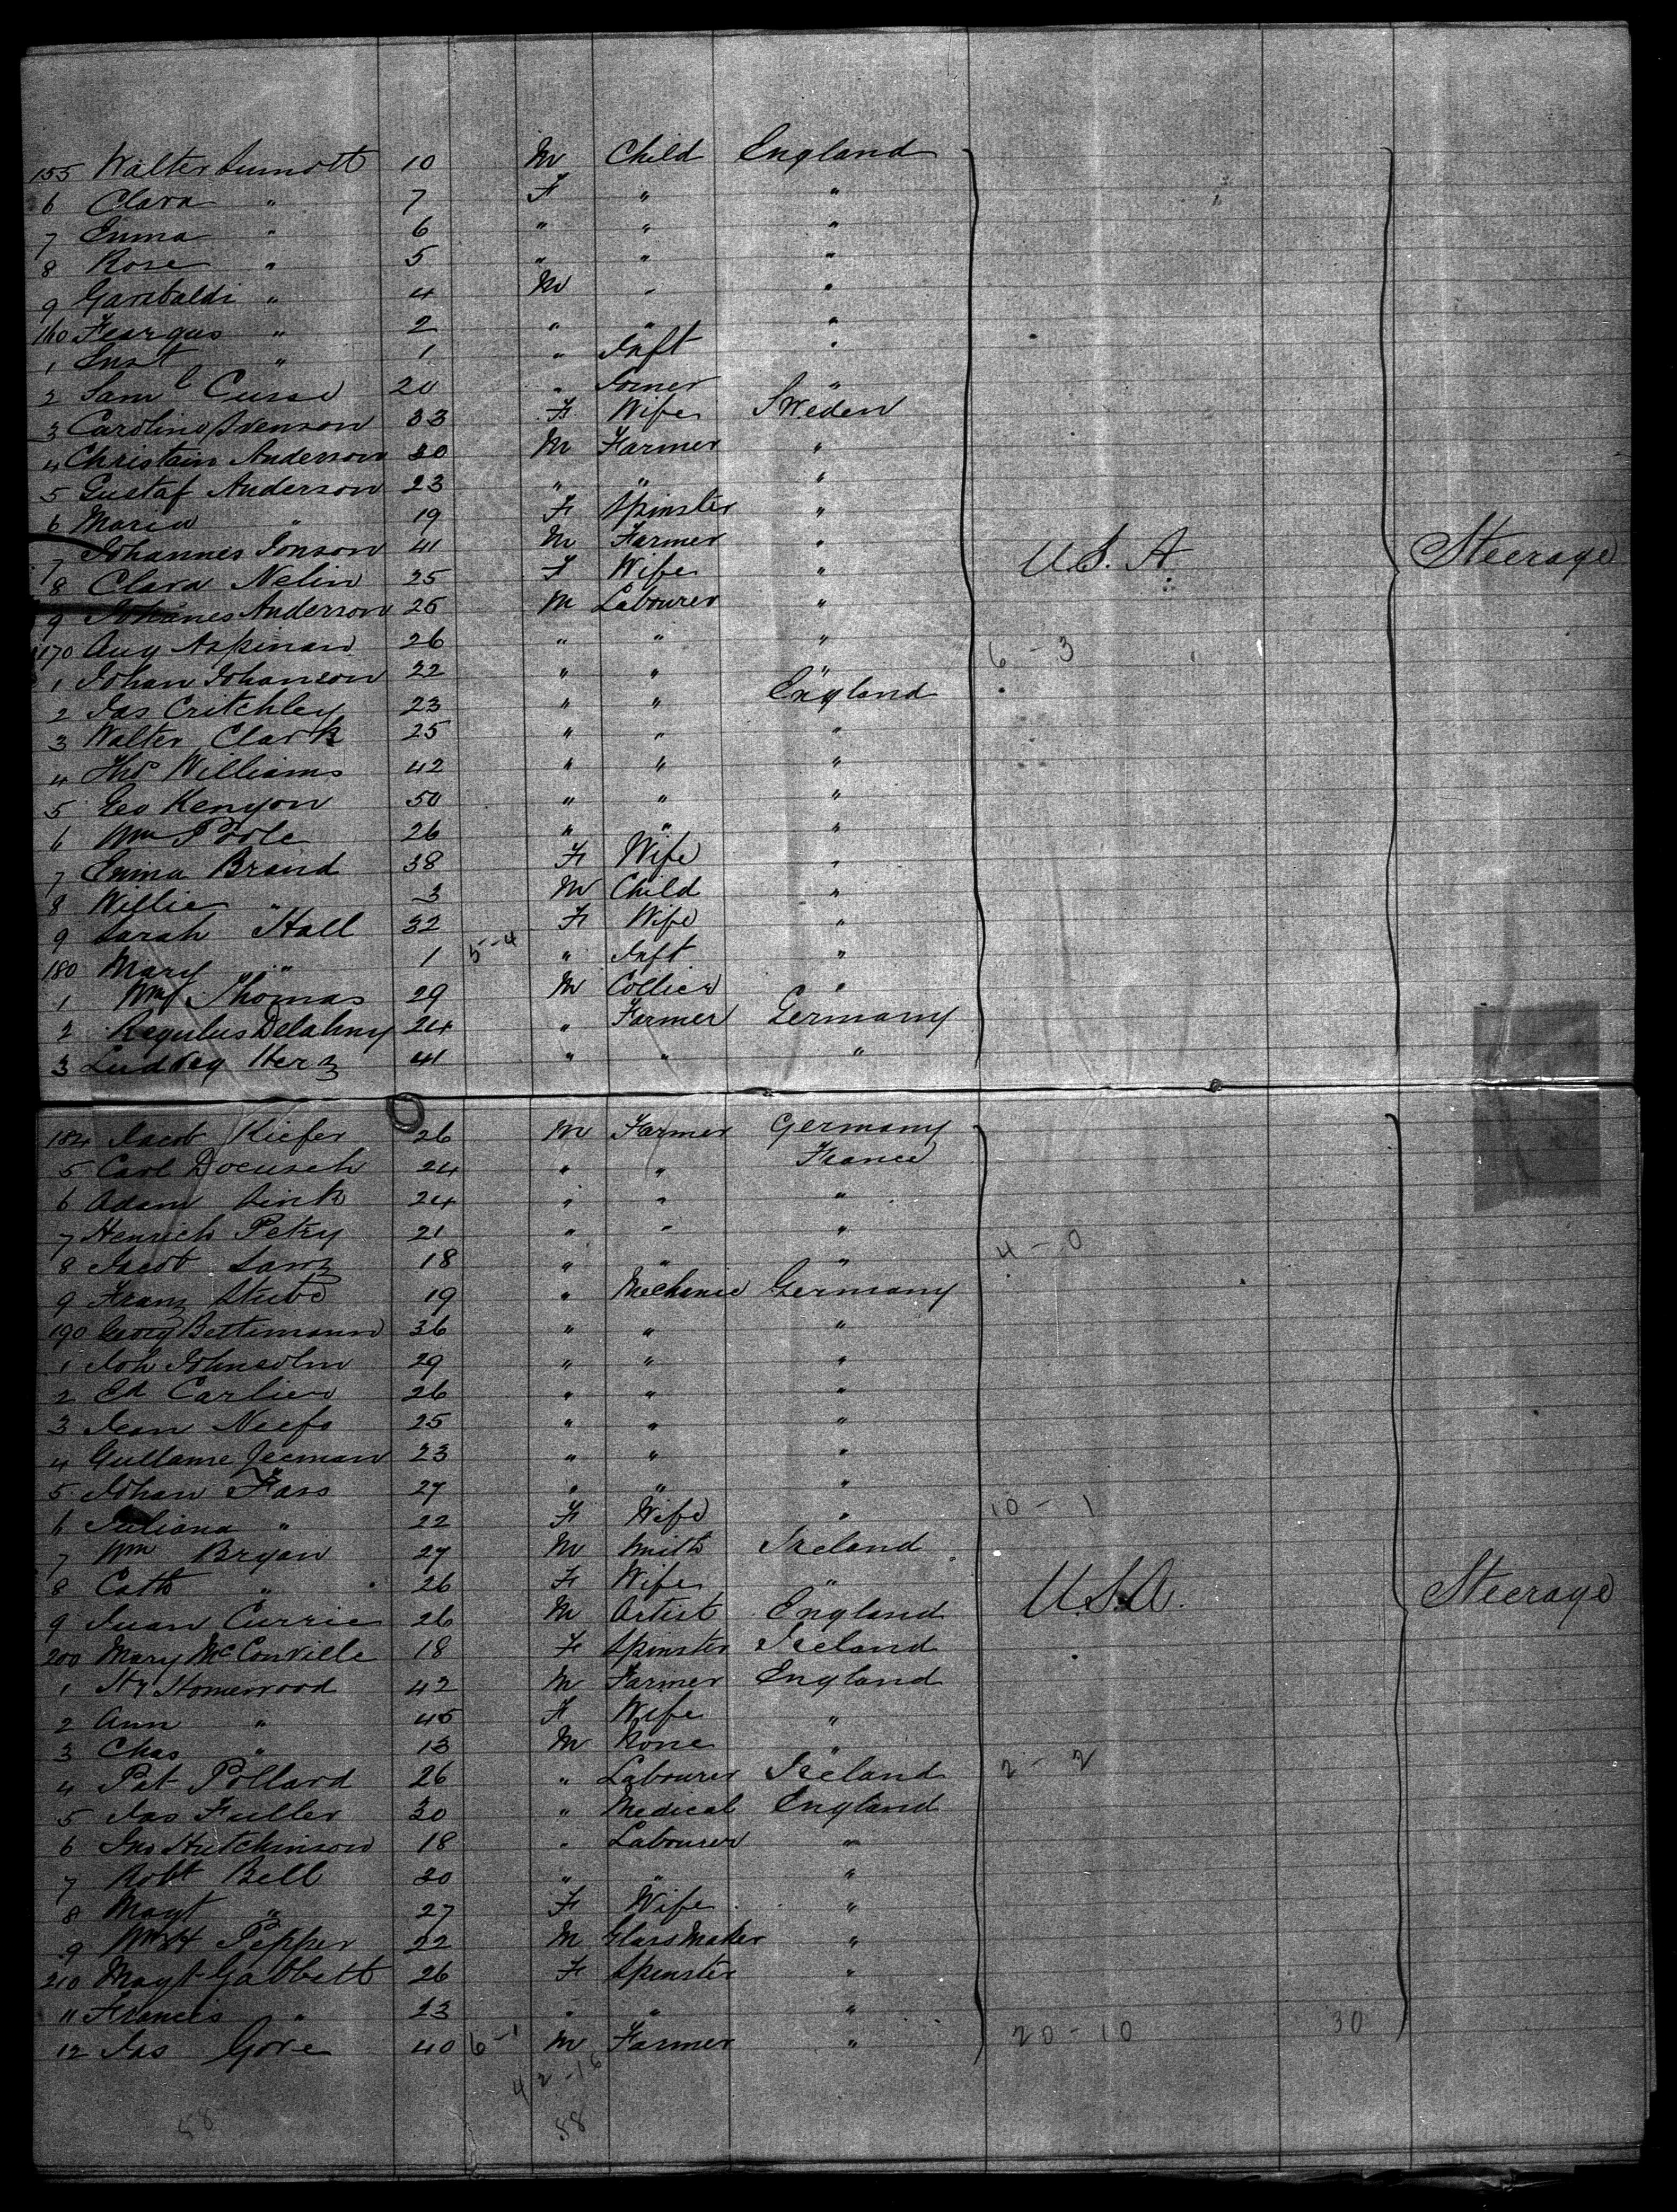 155 Walter 10 M Child England
6 Clara " 7 F " "
7 Emma " 6 " " "
8 Rose " 5 " " "
9 Garibaldi " 4 M " "
160 Feargus " 2 " " "
1 " 1 " Inft "
2 Saml 20 " Joiner "
3 Caroline Svenson 33 F Wife Sweden
4 Christain Anderson 30 M Farmer "
5 Gustaf Anderson 23 " " "
6 Maria " 19 F Spinster "
7 Johannes Jonson 41 M Farmer "
U.S.A
Steerage
8 Clara Nelin 25 F Wife "
9 Johanes Anderson 25 M Labourer "
170 Aug Aspenan 26 " " "
6 - 3
1 Johan Johanson 22 " " "
2 Jas Critchley 23 " " England
3 Walter Clark 25 " " "
4 Thos Williams 42 " " "
5 Geo Kenyon 50 " " "
6 Wm Poole 26 " " "
7 Emma Brand 38 F Wife "
8 Willie " 3 M Child "
9 Sarah Hall 32 F Wife "
180 Mary " 1 5-4 " Inft "
1 Wm Thomas 29 M Collier "
2 Regulus Delahny 24 " Farmer Germany
3 Ludveg Herz 41 " " "
184 Jacob Kiefer 26 M Farmer Germany
5 Carl Docusch 24 " " France
6 Adam Sink 24 " " "
7 Henrich Petry 21 " " "
8 Jacob 18 " " "
4 - 0
9 Franz Stube 19 " Mechanic Germany
190 Georg Bettimann 36 " " "
1 Joh Johnsohn 29 " " "
2 Ed Carlier 26 " " "
3 Jean Neefs 25 " " "
4 Gullame Jeeman 23 " " "
5 Johan Fass 27 " " "
6 Juliana " 22 F Wife "
10 - 1
7 Wm Bryan 27 M Smith Ireland
8 Cath " 26 F Wife "
9 Juan Currie 26 M Artist England
U.S.A.
Steerage
200 Mary McConville 18 F Spinster Ireland
1 Hy Homewood 42 M Farmer England
2 Ann " 45 F Wife "
3 Chas " 13 M None "
4 Pat Pollard 26 " Labourer Ireland
2 - 2
5 Jas Fuller 30 " Medical England
6 Jno Hutchinson 18 " Labourer "
7 Robt Bell 20 " " "
8 Magt " 27 F Wife "
9 Wm H Pepper 22 M Glass Maker "
210 Magt Gabbett 26 F Spinster "
11 Frances " 23 " " "
12 Jas Gore 40 6-1 M Farmer "
20-10 30
42-16
58 58